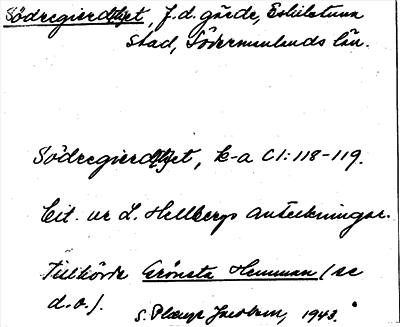 Södregierdhet, f.d. gärde, Eskilstuna
stad, Södermanlands län.
Södregierdhet, k-a C1:118-119.
Cit. ur L. Hellbergs anteckningar.
Tillhörde Grönsta Hemman (se
d.o.).
S. Jacobson, 1943.